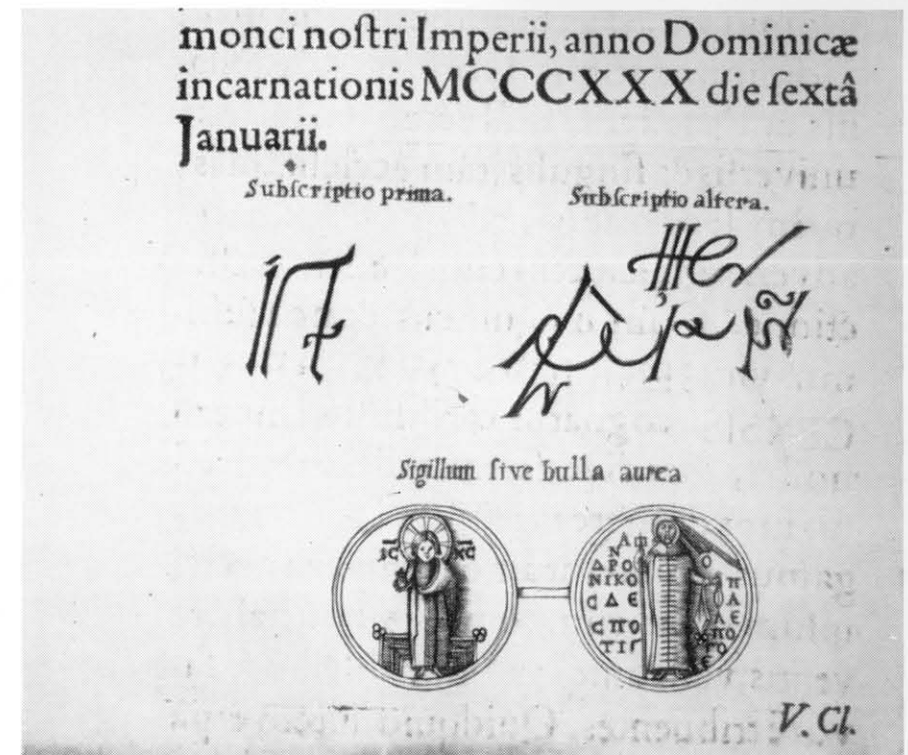 monci noſtri Imperii, anno Dominicæ
incarnationis MCCCXXX die ſextâ
Januarii.
Subſcriptio prima.
Subſcriptio altera.
Sigillum ſive bulla aurea
IC XC
ΑΦ
Ν
ΔΡΟ
ΝΙΚΟ
C Δ Ε
C ΠΟ
ΤΙΓ
Π
Α
ΛΕ
ΠΟ
V. Cl.